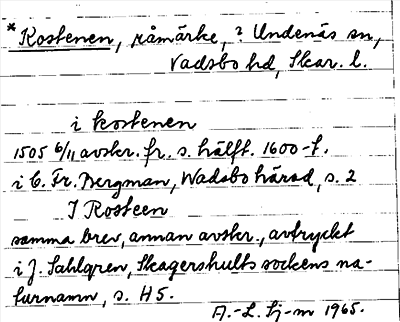 *Kostenen, råmärke, ? Undenäs sn,
Vadsbo hd, Skar. l.
i kostenen
1505 6/11 avskr. fr. s. hälft. 1600-t.
i C. Fr. Bergman, Wadsbo härad, s. 2
I Rosteen
samma brev, annan avskr., avtryckt
i J. Sahlgren, Skagershults sockens na-
turnamn, s. H5.
A.-L. Sj-m 1965.